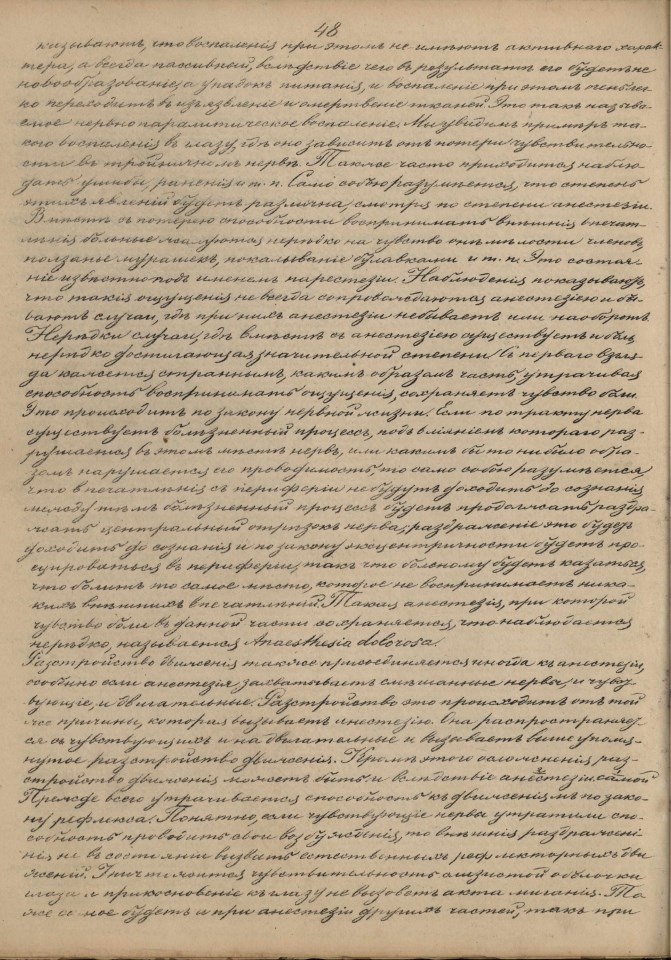 48
казываютъ, что воспаленія при этомъ не имѣютъ активнаго харак-
тера, а всегда пассивный, вслѣдствіе чего въ результатѣ его будетъ не
новообразованіе, а упадокъ питанія, и воспаленіе при этомъ очень лег-
ко переходитъ въ изъязвленіе и омертвеніе тканей. Это такъ называ-
емое нервно паралитическое воспаленіе. Мы увидимъ примѣръ та-
кого воспаленія въ глазу, гдѣ оно зависитъ отъ потери чувствительно-
сти въ тройничномъ нервѣ. Также часто приходится наблю-
дать ушибы, раненія и т. п. Само собою разумѣется, что степень
этихъ явленій будетъ различна, смотря по степени анестезіи.
Вмѣстѣ съ потерею способности воспринимать внѣшнія впечат-
лѣнія больные жалуются нерѣдко на чувство онѣмѣлости членовъ,
ползанье мурашекъ, покалываніе булавками и т. п. Это состоя-
ніе извѣстно подъ именемъ парестезіи. Наблюденія показываютъ,
что такія ощущенія не всегда сопровождаются анестезіею и бы-
ваютъ случаи, гдѣ при нихъ анестезіи не бываетъ или наоборотъ.
Нерѣдки случаи, гдѣ вмѣстѣ съ анестезіею существуетъ и боль
нерѣдко достигающая значительной степени. Съ перваго взгля-
да кажется страннымъ, какимъ образомъ часть, утрачивая
способность воспринимать ощущенія, сохраняетъ чувство боли.
Это происходитъ по закону нервной жизни. Если по тракту нерва
существуетъ болѣзненный процессъ, подъ вліяніемъ котораго раз-
рушается въ этомъ мѣстѣ нервъ, или какимъ бы то ни было обра-
зомъ нарушается его проводимость, то само собою разумѣется
что впечатлѣнія съ периферіи не будутъ доходить до сознанія
между тѣмъ болѣзненный процессъ будетъ продолжать раздра-
жать центральный отрѣзокъ нерва; раздраженіе это будетъ
доходить до сознанія и по закону эксцентричности будетъ про-
ецироваться въ периферіи, такъ что больному будетъ казаться,
что болитъ то самое мѣсто, которое не воспринимаетъ ника-
кихъ внѣшнихъ впечатлѣній. Такая анестезія, при которой
чувство боли въ данной части сохраняется, что наблюдается
нерѣдко, называется Anaesthesia dolorosa.
Разстройство движенія также присоединяется иногда къ анестезіи,
особенно если анестезія захватываетъ смѣшанные нервы, и чувст-
вующіе, и двигательные. Разстройство это происходитъ отъ той
же причины, которая вызываетъ анестезію. Она распространяет-
ся съ чувствующихъ и на двигательные и вызываетъ выше упомя-
нутое разстройство движенія. Кромѣ этого осложненія раз-
стройство движенія можетъ быть и вслѣдствіе анестезіи самой.
Прежде всего утрачивается способность къ движеніямъ по зако-
ну рефлекса. Понятно, если чувствующіе нервы утратили спо-
собность проводить свои возбужденія, то внѣшнія раздражені-
нія не въ состояніи вызвать естественныхъ рефлекторныхъ дви-
женій. чувствительность слизистой оболочки
глаза и прикосновеніе къ глазу не вызоветъ акта миганія. То
же самое будетъ и при анестезіи другихъ частей, такъ при